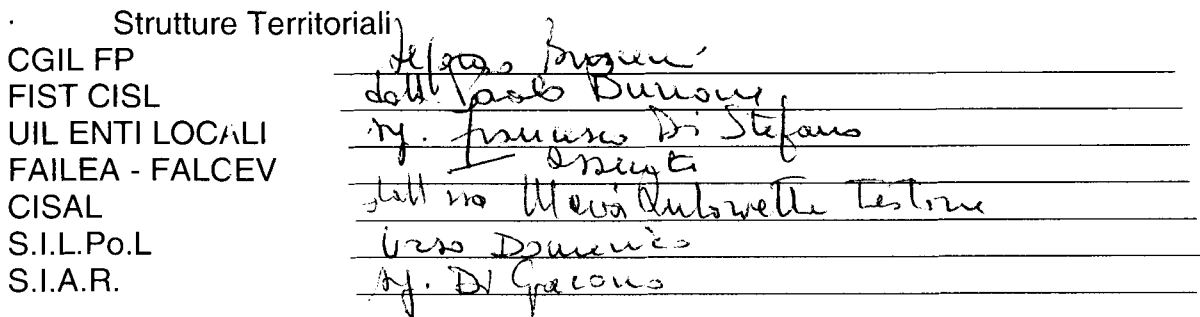 · Strutture Territoriali
CGIL FP Stefano
FIST CISL dott. Paolo Burrone
UIL ENTI LOCALI sig. Francesco Di Stefano
FAILEA - FALCEV Assente
CISAL dott.ssa Maria Antonietta Testone
S.I.L.Po.L Urso Domenico
S.I.A.R. sig. Di Giacomo